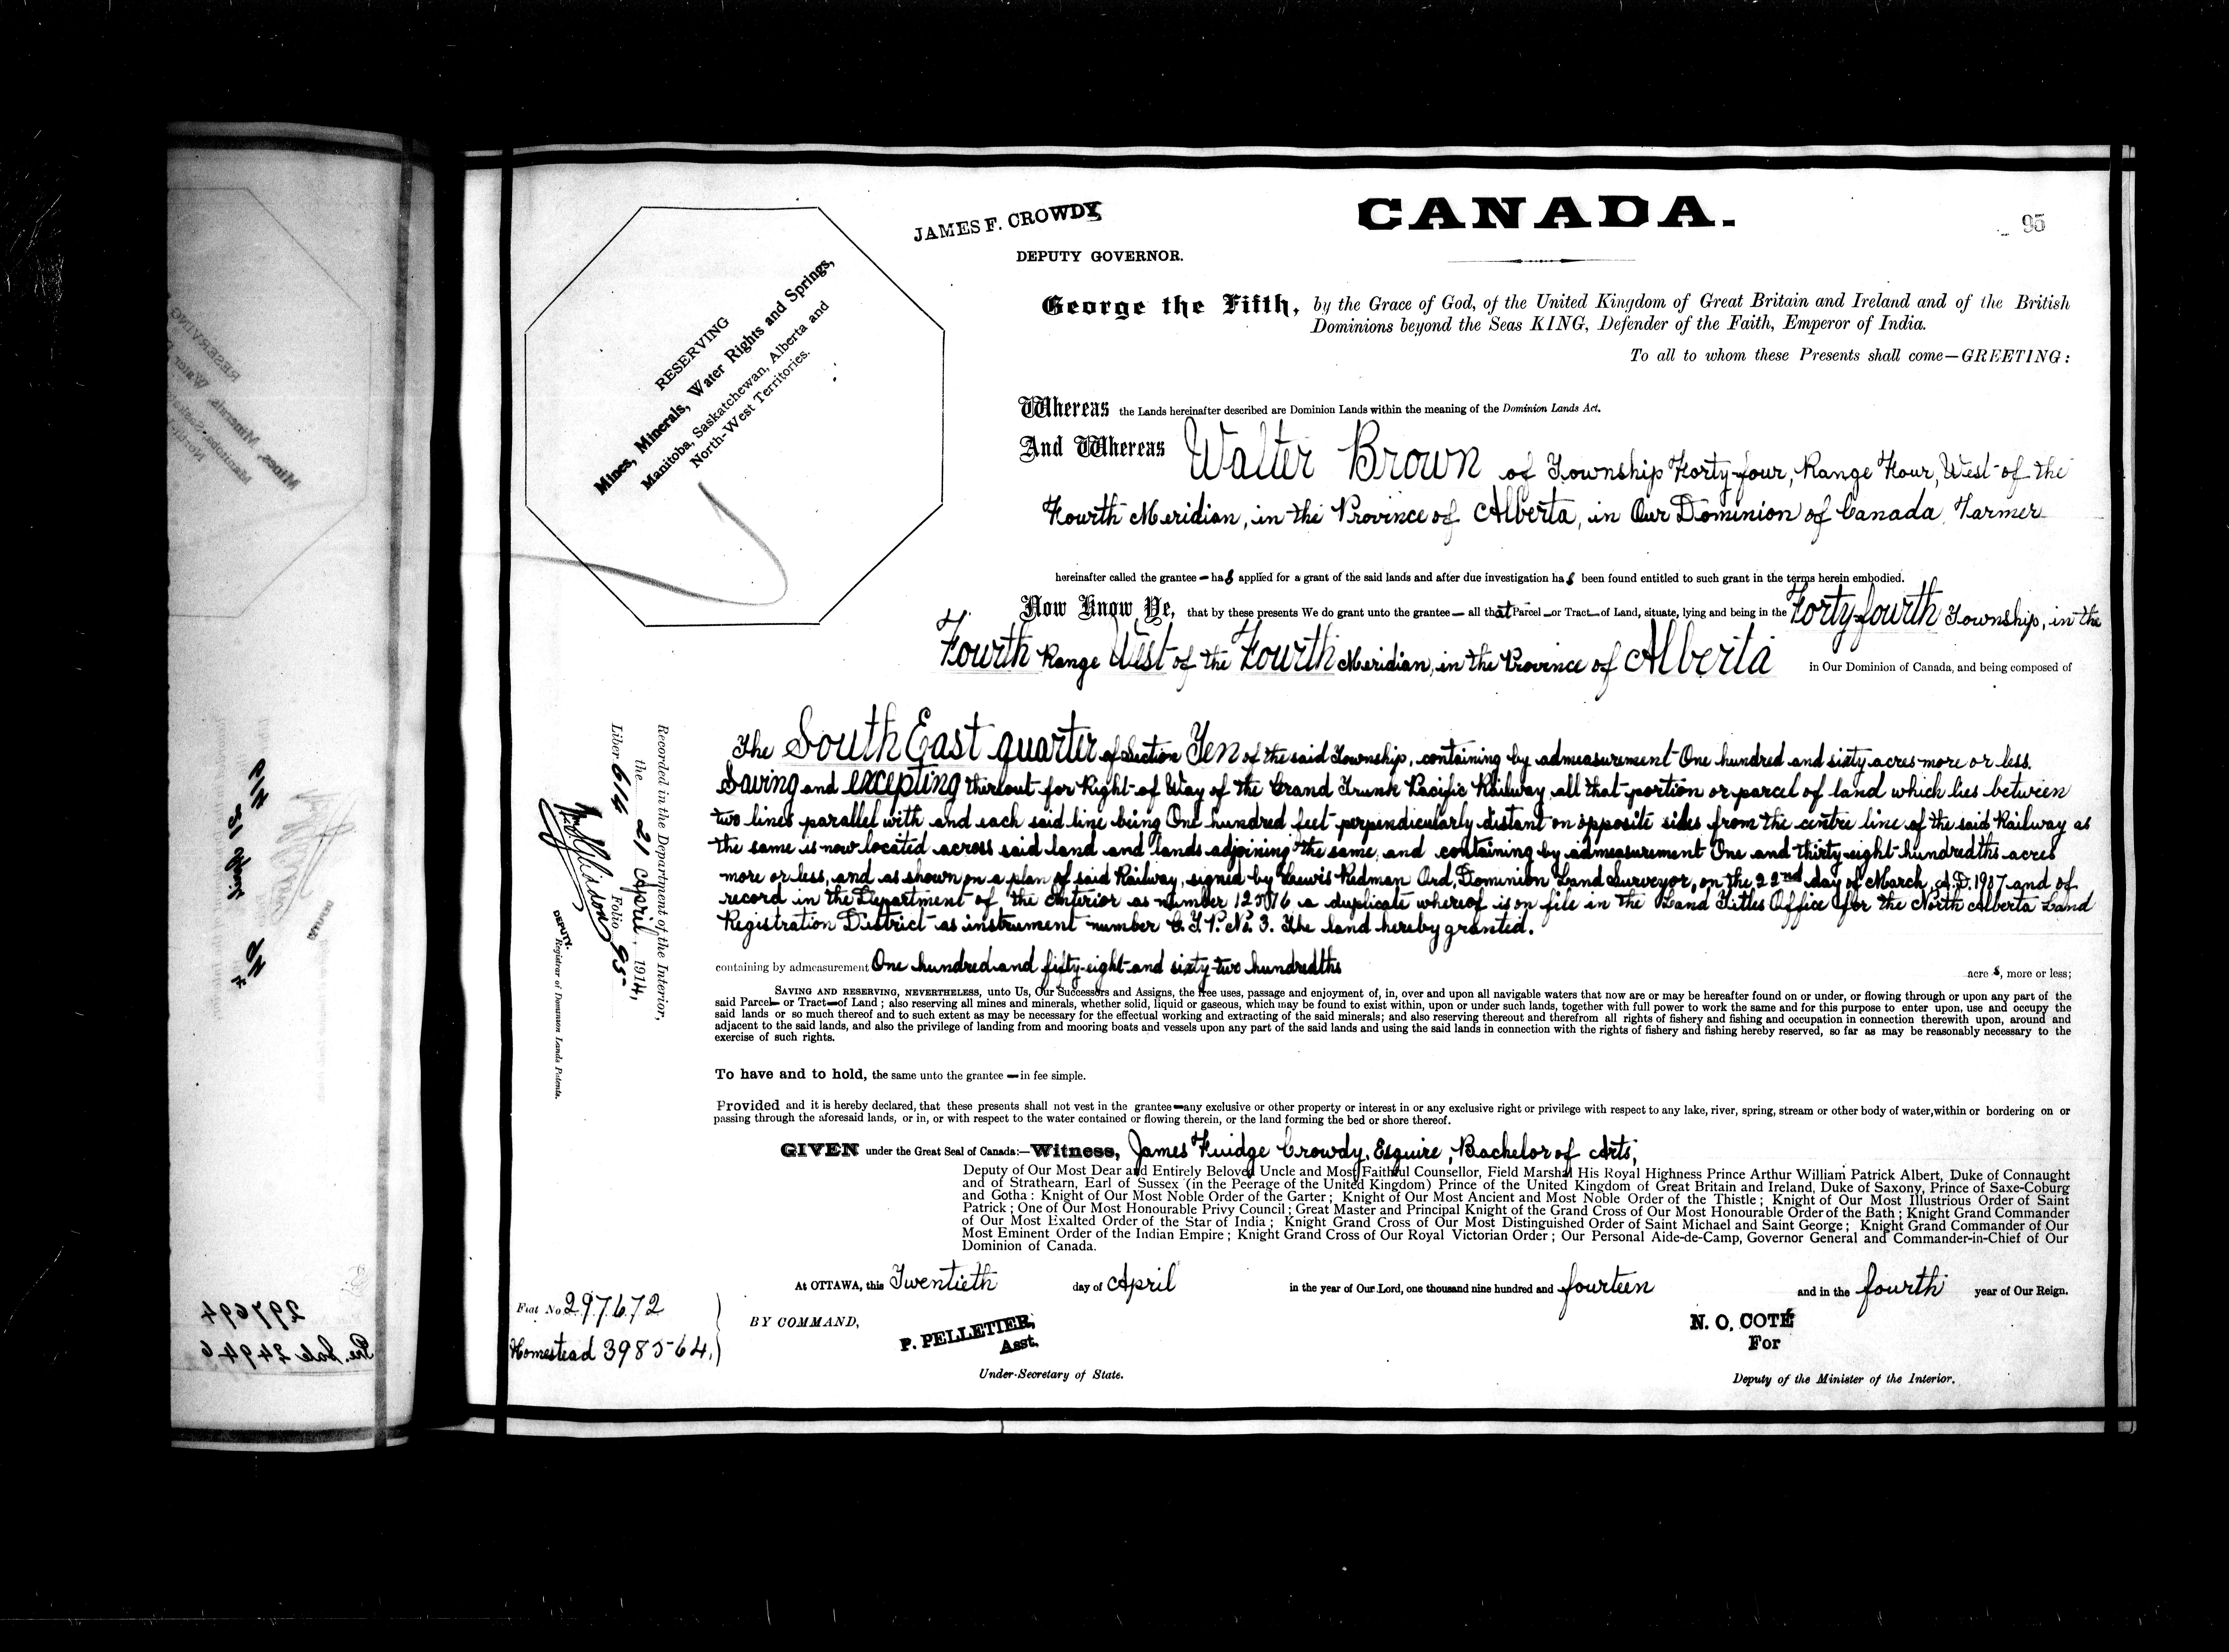 CANADA.
95
JAMES F. CROWDY
DEPUTY GOVERNOR.
RESERVING
Mines, Minerals, Water Rights and Springs,
Manitoba, Saskatchewan, Alberta and
North-West Territories.
George the Fifth, by the Grace of God, of the United Kingdom of Great Britain and Ireland and of the British
Dominions beyond the Seas KING, Defender of the Faith, Emperor of India.
To all to whom these Presents shall come—GREETING:
Whereas the Lands hereinafter described are Dominion Lands within the meaning of the Dominion Lands Act.
And Whereas Walter Brown of Township Forty-four, Range Four, West of the
Fourth Meridian, in the Province of Alberta, in Our Dominion of Canada, Farmer
hereinafter called the grantee — has applied for a grant of the said lands and after due investigation has been found entitled to such grant in the terms herein embodied.
Now Know Ye, that by these presents We do grant unto the grantee — all that Parcel — or Tract — of Land, situate, lying and being in the Forty-fourth Township, in the
Fourth Range West of the Fourth Meridian, in the Province of Alberta in Our Dominion of Canada, and being composed of
The South East quarter of Section Ten of the said Township, containing by admeasurement One hundred and sixty acres more or less.
Saving and excepting thereout for Right of Way of the Grand Trunk Pacific Railway, all that portion or parcel of land which lies between
two lines parallel with and each said line being One hundred feet perpendicularly distant on opposite sides from the centre line of the said Railway as
the same is now located across said land and lands adjoining the same, and containing by admeasurement One and thirty-eight hundredths acres
more or less, and as shown on a plan of said Railway, signed by Lewis Redman Ord, Dominion Land Surveyor, on the 22nd day of March, A.D. 1907 and of
record in the Department of the Interior as number a duplicate whereof is on file in the Land Titles Office for the North Alberta Land
Registration District as instrument number G. T. P. No. 3. The land hereby granted.
containing by admeasurement One hundred and fifty-eight and sixty-two hundredths acre s, more or less;
SAVING AND RESERVING, NEVERTHELESS, unto Us, Our Successors and Assigns, the free uses, passage and enjoyment of, in, over and upon all navigable waters that now are or may be hereafter found on or under, or flowing through or upon any part of the
said Parcel — or Tract — of Land; also reserving all mines and minerals, whether solid, liquid or gaseous, which may be found to exist within, upon or under such lands, together with full power to work the same and for this purpose to enter upon, use and occupy the
said lands or so much thereof and to such extent as may be necessary for the effectual working and extracting of the said minerals; and also reserving thereout and therefrom all rights of fishery and fishing and occupation in connection therewith upon, around and
adjacent to the said lands, and also the privilege of landing from and mooring boats and vessels upon any part of the said lands and using the said lands in connection with the rights of fishery and fishing hereby reserved, so far as may be reasonably necessary to the
exercise of such rights.
To have and to hold, the same unto the grantee — in fee simple.
Provided and it is hereby declared, that these presents shall not vest in the grantee — any exclusive or other property or interest in or any exclusive right or privilege with respect to any lake, river, spring, stream or other body of water, within or bordering on or
passing through the aforesaid lands, or in, or with respect to the water contained or flowing therein, or the land forming the bed or shore thereof.
GIVEN under the Great Seal of Canada:—Witness, James Fuidge Crowdy, Esquire, Bachelor of Arts,
Deputy of Our Most Dear and Entirely Beloved Uncle and Most Faithful Counsellor, Field Marshal His Royal Highness Prince Arthur William Patrick Albert, Duke of Connaught
and of Strathearn, Earl of Sussex (in the Peerage of the United Kingdom) Prince of the United Kingdom of Great Britain and Ireland, Duke of Saxony, Prince of Saxe-Coburg
and Gotha: Knight of Our Most Noble Order of the Garter; Knight of Our Most Ancient and Most Noble Order of the Thistle; Knight of Our Most Illustrious Order of Saint
Patrick; One of Our Most Honourable Privy Council; Great Master and Principal Knight of the Grand Cross of Our Most Honourable Order of the Bath; Knight Grand Commander
of Our Most Exalted Order of the Star of India; Knight Grand Cross of Our Most Distinguished Order of Saint Michael and Saint George; Knight Grand Commander of Our
Most Eminent Order of the Indian Empire; Knight Grand Cross of Our Royal Victorian Order; Our Personal Aide-de-Camp, Governor General and Commander-in-Chief of Our
Dominion of Canada.
At OTTAWA, this Twentieth day of April in the year of Our Lord, one thousand nine hundred and fourteen and in the fourth year of Our Reign.
Fiat No. 297672
Homestead 398564.
BY COMMAND,
P. PELLETIER,
Asst.
Under-Secretary of State.
N. O. COTÉ
For
Deputy of the Minister of the Interior.
Recorded in the Department of the Interior,
the 21 April, 1914,
Liber 614 Folio 95
DEPUTY.
Registrar of Dominion Lands Patents.
RESERVING
Mines,
297694
Pre. Sale 24946